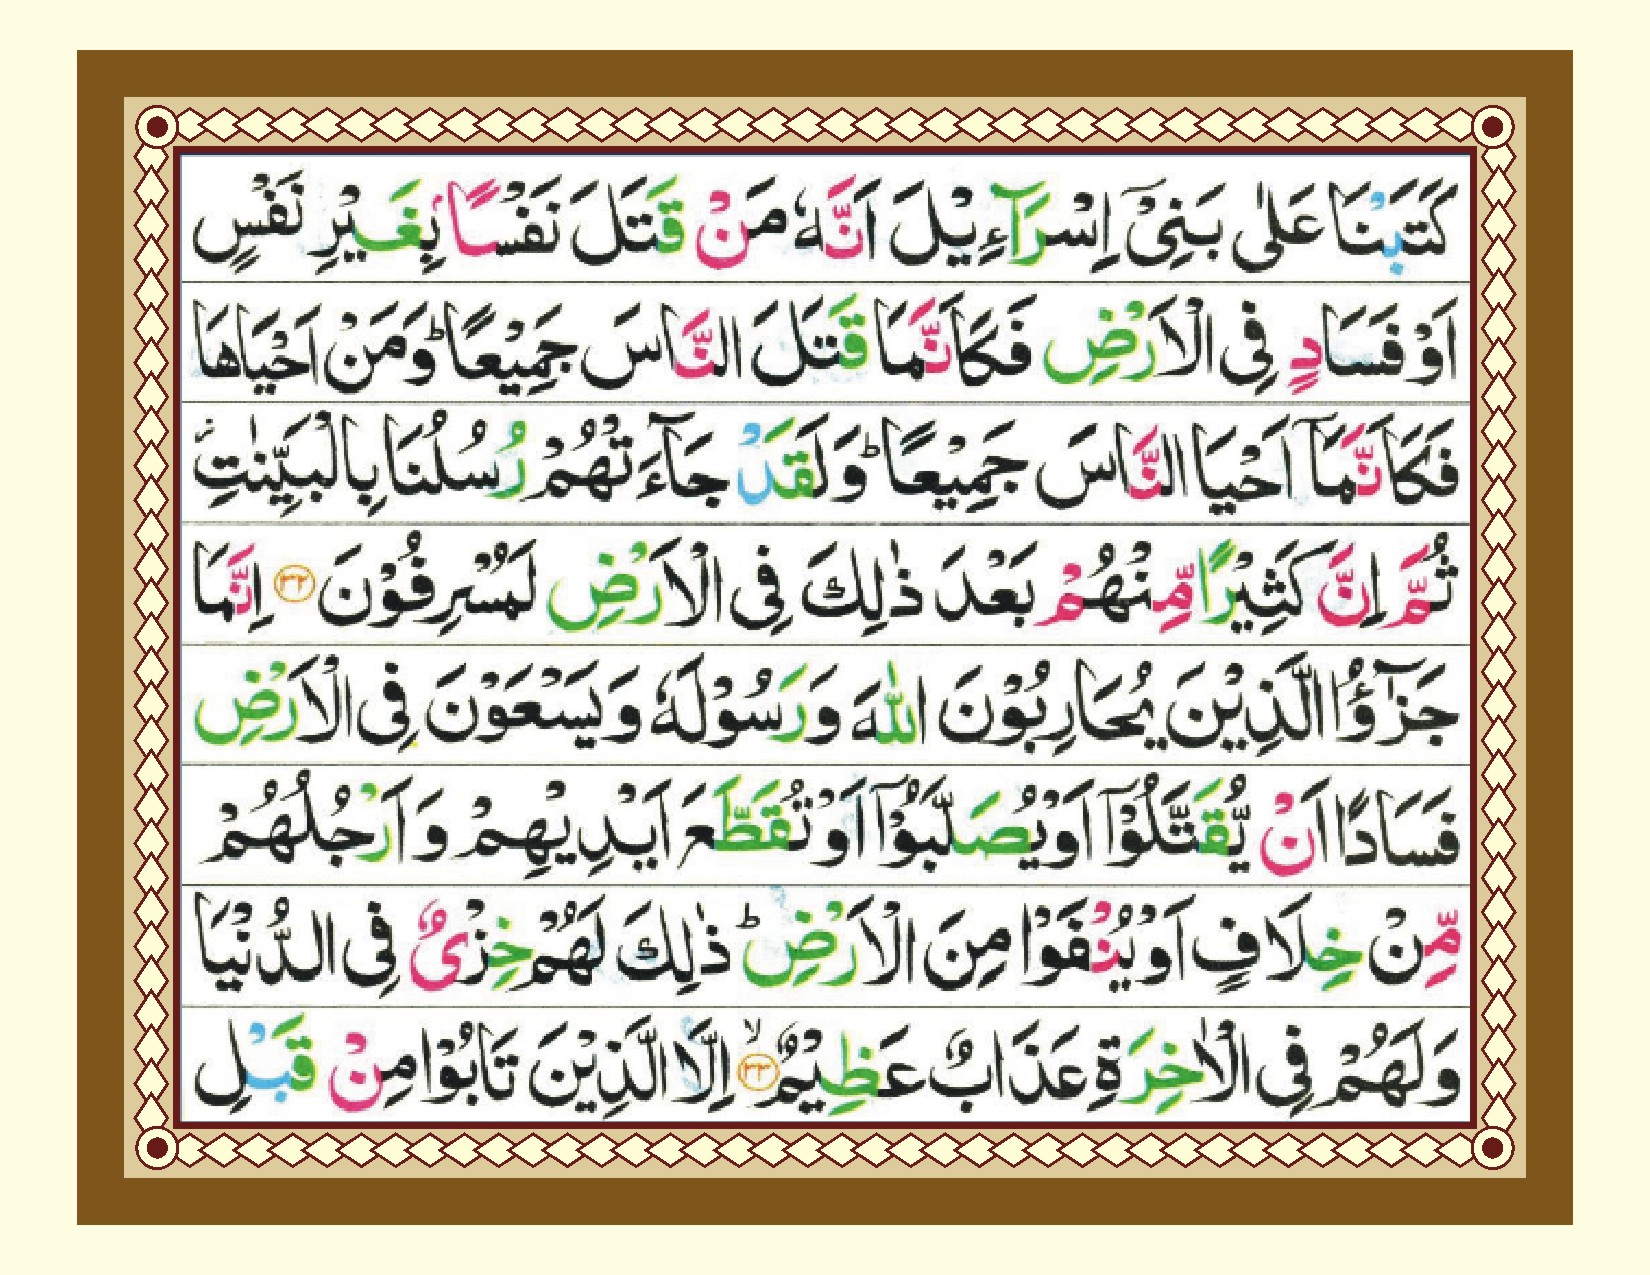 كَتَبْنَا عَلٰى بَنِىْۤ اِسْرَآءِيْلَ اَنَّهٗ مَنْ قَتَلَ نَفْسًاۢ بِغَيْرِ نَفْسٍ
اَوْ فَسَادٍ فِى الْاَرْضِ فَكَاَنَّمَا قَتَلَ النَّاسَ جَمِيْعًا ؕ وَمَنْ اَحْيَاهَا
فَكَاَنَّمَاۤ اَحْيَا النَّاسَ جَمِيْعًا ؕ وَلَقَدْ جَآءَتْهُمْ رُسُلُنَا بِالْبَيِّنٰتِ ز
ثُمَّ اِنَّ كَثِيْرًا مِّنْهُمْ بَعْدَ ذٰلِكَ فِى الْاَرْضِ لَمُسْرِفُوْنَ ﴿۳۲﴾ اِنَّمَا
جَزٰٓؤُا الَّذِيْنَ يُحَارِبُوْنَ اللّٰهَ وَرَسُوْلَهٗ وَيَسْعَوْنَ فِى الْاَرْضِ
فَسَادًا اَنْ يُّقَتَّلُوْۤا اَوْ يُصَلَّبُوْۤا اَوْ تُقَطَّعَ اَيْدِيْهِمْ وَاَرْجُلُهُمْ
مِّنْ خِلَافٍ اَوْ يُنْفَوْا مِنَ الْاَرْضِ ؕ ذٰلِكَ لَهُمْ خِزْىٌ فِى الدُّنْيَا
وَلَهُمْ فِى الْاٰخِرَةِ عَذَابٌ عَظِيْمٌ ﴿۳۳﴾ ۙ اِلَّا الَّذِيْنَ تَابُوْا مِنْ قَبْلِ